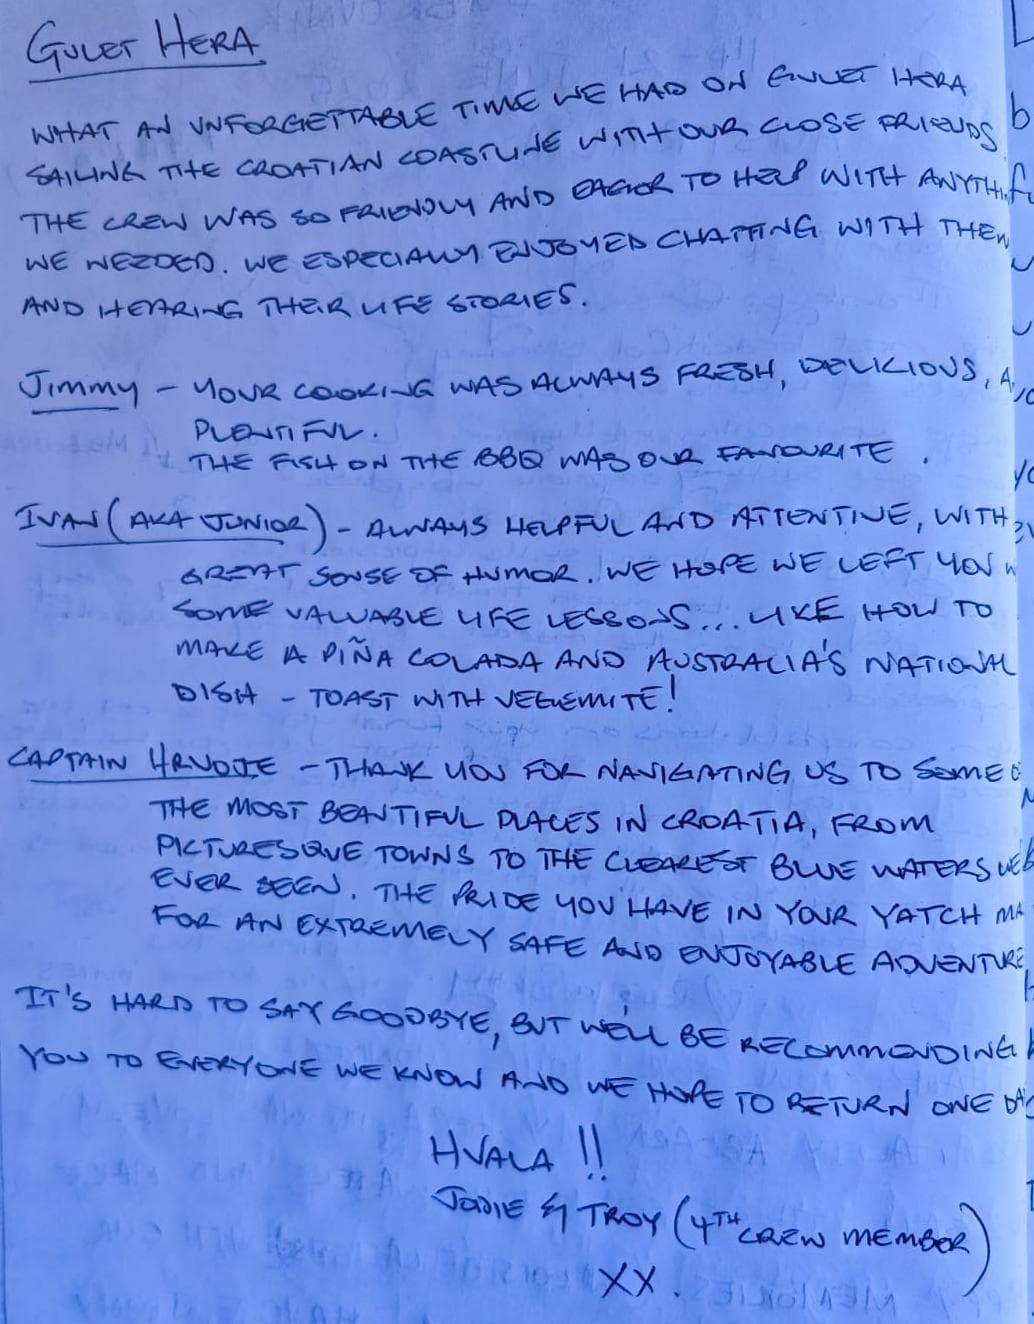 GULET HERA
WHAT AN UNFORGETTABLE TIME WE HAD ON GULET HERA
SAILING THE CROATIAN COASTLINE WITH OUR CLOSE FRIENDS
THE CREW WAS SO FRIENDLY AND EAGER TO HELP WITH ANYTHI
WE NEEDED. WE ESPECIALLY ENJOYED CHATTING WITH THEM
AND HEARING THEIR LIFE STORIES.
Jimmy - YOUR COOKING WAS ALWAYS FRESH, DELICIOUS, A
PLENTIFUL.
THE FISH ON THE BBQ WAS OUR FAVOURITE.
IVAN (AKA JUNIOR) - ALWAYS HELPFUL AND ATTENTIVE, WITH
GREAT SENSE OF HUMOR. WE HOPE WE LEFT YOU W
SOME VALUABLE LIFE LESSONS... LIKE HOW TO
MAKE A PIÑA COLADA AND AUSTRALIA'S NATIONAL
DISH - TOAST WITH VEGEMITE!
CAPTAIN HRVOJE - THANK YOU FOR NAVIGATING US TO SOME O
THE MOST BEAUTIFUL PLACES IN CROATIA, FROM
PICTURESQUE TOWNS TO THE CLEAREST BLUE WATERS WE
EVER SEEN. THE PRIDE YOU HAVE IN YOUR YATCH MA
FOR AN EXTREMELY SAFE AND ENJOYABLE ADVENTURE
IT'S HARD TO SAY GOODBYE, BUT WE'LL BE RECOMMENDING
YOU TO EVERYONE WE KNOW AND WE HOPE TO RETURN ONE DA
HVALA !!
JODIE & TROY (4TH CREW MEMBER)
XX.